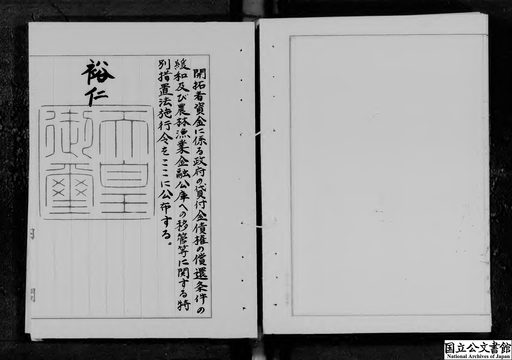 開拓者資金に係る政府の貸付金債権の償還条件の
緩和及び農林漁業金融公庫への移管等に関する特
別措置法施行令をここに公布する。
裕仁
天皇
御璽
国立公文書館
National Archives of Japan